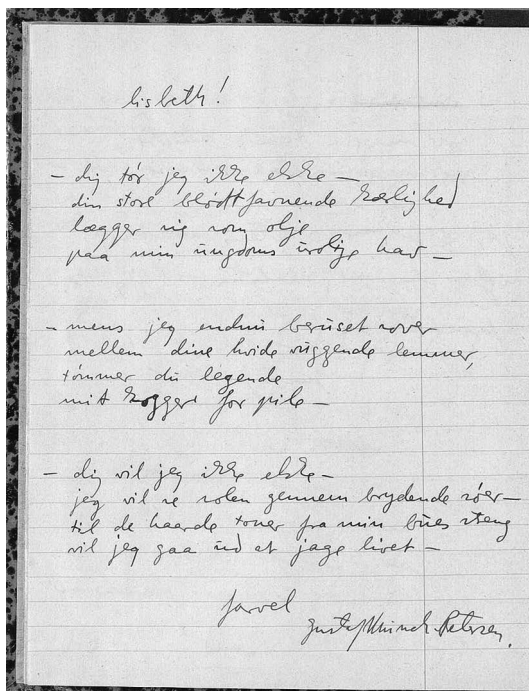 lisbeth!
— dig tór jeg ikke elske —
din store blódtfavnende kærlighed
lægger sig som olje
paa min ungdoms urolige hav —
— mens jeg endnu beruset sover
mellem dine hvide vuggende lemmer,
tómmer du legende
mit kogger for pile —
— dig vil jeg ikke elske —
jeg vil se solen gennem brydende sóer —
til de haarde toner fra min bues streng
vil jeg gaa ud at jage livet —
farvel
Gustaf Munch-Petersen.